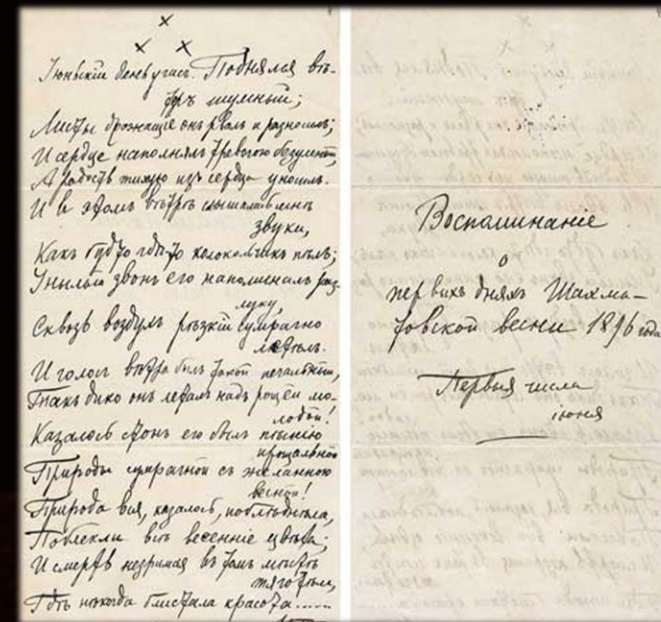 × 
× ×
Іюньскій день угасъ. Поднялся вѣ-
тръ шумный;
Листы дрожащіе онъ рвалъ и разносилъ;
И сердце наполнялъ тревогою безумной,
А радость тихую изъ сердца уносилъ.
И в этомъ вѣтрѣ слышались мнѣ
звуки,
Какъ будто гдѣ-то колокольчикъ пѣлъ;
Унылый звонъ его напоминалъ раз-
луку,
Сквозь воздухъ рѣзкій сумрачно
летѣлъ.
И голосъ вѣтра былъ такой печальный,
Такъ дико онъ леталъ надъ рощей мо-
лодой!
Казалось стонъ его былъ пѣснію
прощальной
Природы сумрачной съ желанною
весной!
Природа вся, казалось, поблѣднѣла,
Поблекли всѣ весенніе цвѣта;
И смерть незримая въ томъ мѣстѣ
тяготѣла,
Гдѣ нѣкогда блистала красота......
Воспоминаніе
о
первыхъ дняхъ Шахма-
товской весны 1896 года
Первыя числа
іюня